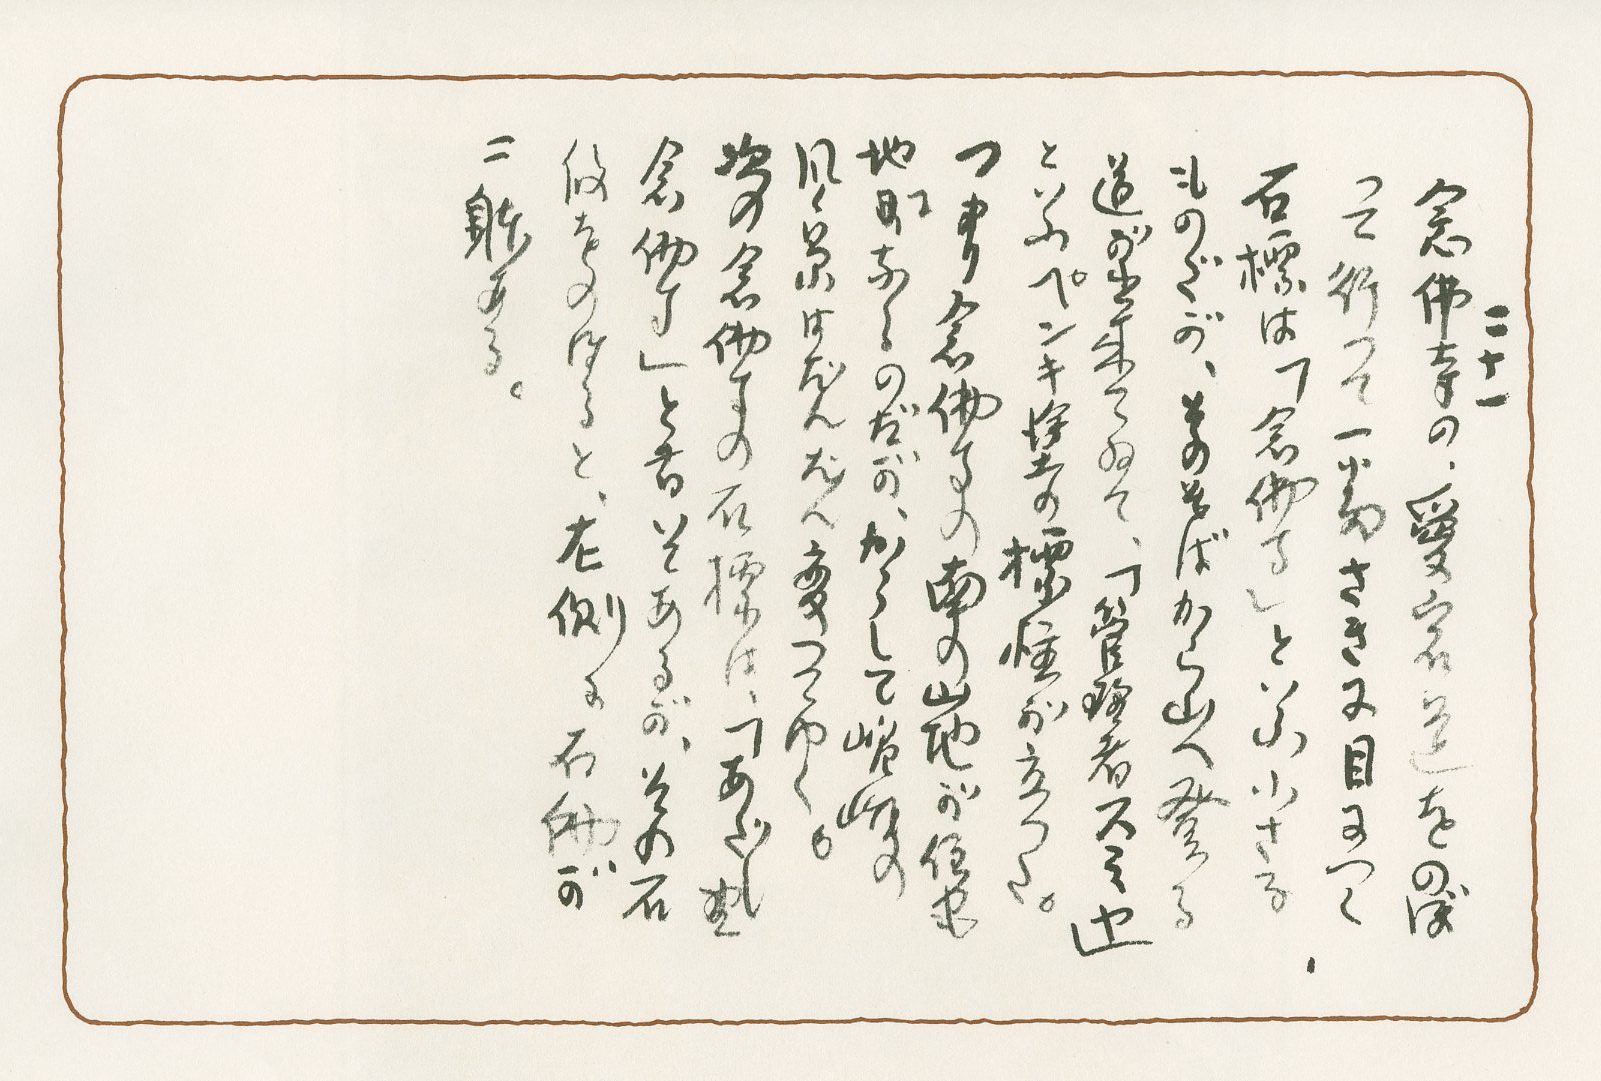 二十一
念佛寺の、愛宕道をのぼ
つて行つて一番さきに目につく
石標は「念佛寺」といふ小さな
ものだが、そのそばから山へ登る
道が出来てゐて、「管理者スミ辻
といふペンキ塗の標柱が立つた。
つまり念佛寺の南の山地が住宅
地町になるのだが、かうして嵯峨の
風景はだんだん変つてゆく。
次の念佛寺の石標は、「あだし野
念佛寺」と書いてあるが、その石
段をのぼると、左側に石佛が
二躰ある。